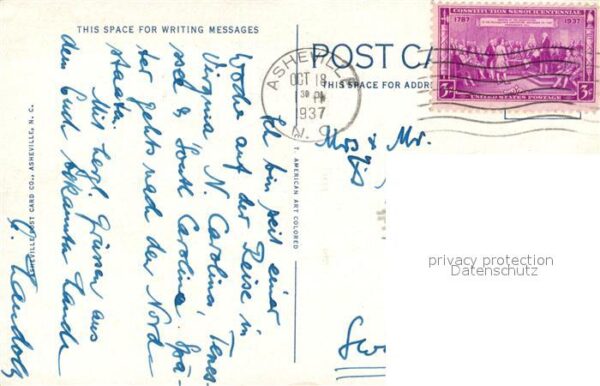 THIS SPACE FOR WRITING MESSAGES
Ich bin seit einer
Woche auf der Reise in
Virginia, N. Carolina, Tenes-
see & South Carolina. Spä-
ter gehts nach den Nord-
staaten.
Mit herzl. Grüssen aus
dem Euch bekannten Lande
ASHEVILLE POST CARD CO., ASHEVILLE, N. C.
T. AMERICAN ART COLORED
POST CA
THIS SPACE FOR ADDRE
ASHEVILLE
OCT 18
30 PM
1937
N. C.
CONSTITUTION SESQUICENTENNIAL
1787 1937
3¢ UNITED STATES POSTAGE 3¢
& Mr.
privacy protection
Datenschutz